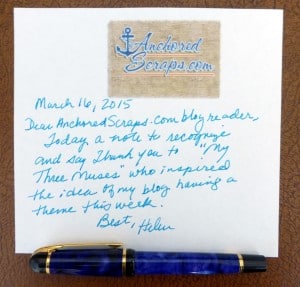 Anchored
Scraps.com
March 16, 2015
Dear AnchoredScraps.com blog reader,
Today a note to recognize
and say Thank you to "My
Three Muses" who inspired
the idea of my blog having a
theme this week.
Best, Helen